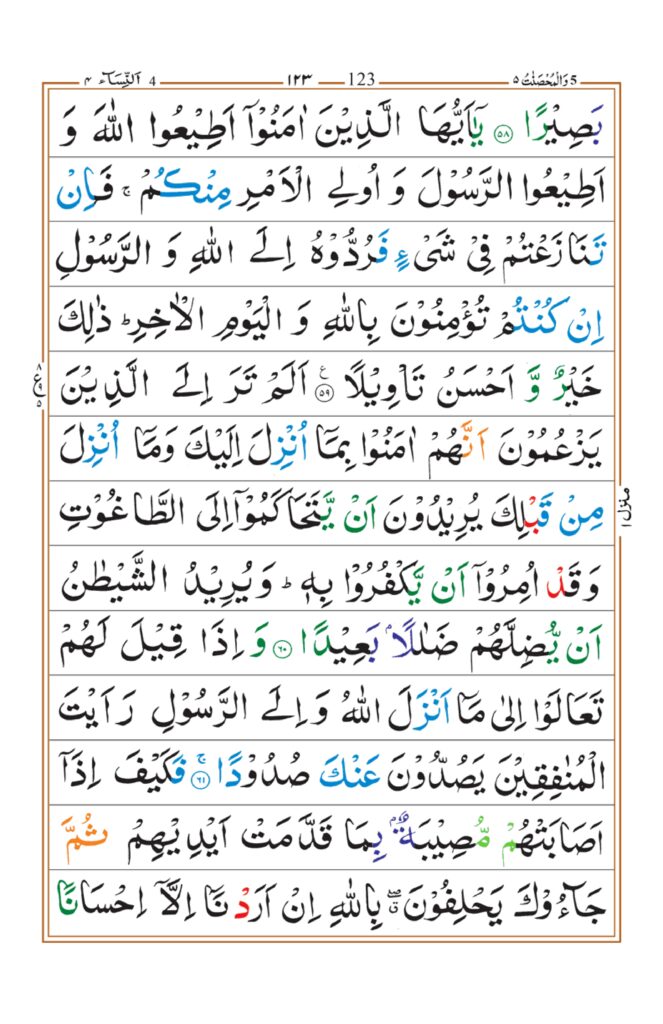 5 وَالْمُحْصَنٰتُ ٥ 123 ١٢٣ 4 اَلنِّسَآء ٤
بَصِيْرًا ﴿۵۸﴾ يٰۤاَيُّهَا الَّذِيْنَ اٰمَنُوْۤا اَطِيْعُوا اللّٰهَ وَ
اَطِيْعُوا الرَّسُوْلَ وَ اُولِى الْاَمْرِ مِنْكُمْ ۚ فَاِنْ
تَنَازَعْتُمْ فِىْ شَىْءٍ فَرُدُّوْهُ اِلَى اللّٰهِ وَ الرَّسُوْلِ
اِنْ كُنْتُمْ تُؤْمِنُوْنَ بِاللّٰهِ وَ الْيَوْمِ الْاٰخِرِ ؕ ذٰلِكَ
خَيْرٌ وَّ اَحْسَنُ تَاْوِيْلًا ﴿۵۹﴾ ع اَلَمْ تَرَ اِلَى الَّذِيْنَ
يَزْعُمُوْنَ اَنَّهُمْ اٰمَنُوْا بِمَاۤ اُنْزِلَ اِلَيْكَ وَمَاۤ اُنْزِلَ
مِنْ قَبْلِكَ يُرِيْدُوْنَ اَنْ يَّتَحَاكَمُوْۤا اِلَى الطَّاغُوْتِ
وَقَدْ اُمِرُوْۤا اَنْ يَّكْفُرُوْا بِهٖ ؕ وَيُرِيْدُ الشَّيْطٰنُ
اَنْ يُّضِلَّهُمْ ضَلٰلًاۢ بَعِيْدًا ﴿۶۰﴾ وَ اِذَا قِيْلَ لَهُمْ
تَعَالَوْا اِلٰى مَاۤ اَنْزَلَ اللّٰهُ وَ اِلَى الرَّسُوْلِ رَاَيْتَ
الْمُنٰفِقِيْنَ يَصُدُّوْنَ عَنْكَ صُدُوْدًا ۚ﴿۶۱﴾ فَكَيْفَ اِذَاۤ
اَصَابَتْهُمْ مُّصِيْبَةٌۢ بِمَا قَدَّمَتْ اَيْدِيْهِمْ ثُمَّ
جَآءُوْكَ يَحْلِفُوْنَ ۖۗ بِاللّٰهِ اِنْ اَرَدْنَاۤ اِلَّاۤ اِحْسَانًا
منزل ١